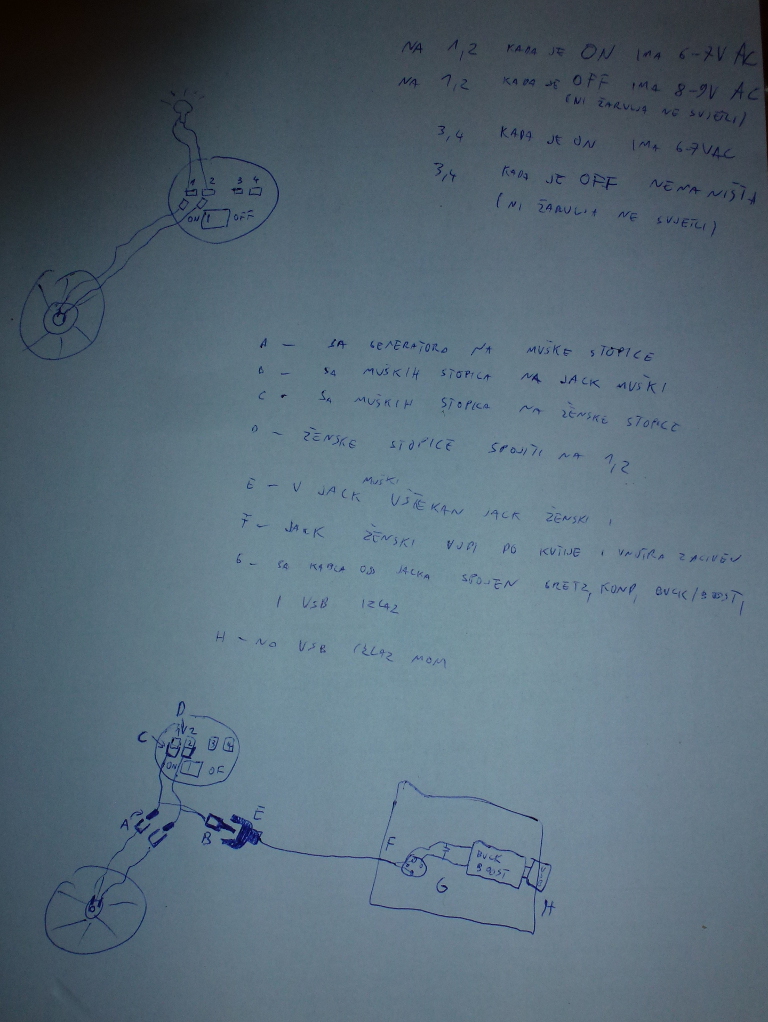 NA 1,2 KADA JE ON IMA 6-7V AC
NA 1,2 KADA JE OFF IMA 8-9V AC
(NI ŽARULJA NE SVJETLI)
3,4 KADA JE ON IMA 6-7VAC
3,4 KADA JE OFF NEMA NIŠTA
(NI ŽARULJA NE SVJETLI)
1 2 3 4
ON OFF
A - SA GENERATORA NA MUŠKE STOPICE
B - SA MUŠKIH STOPICA NA JACK MUŠKI
C - SA MUŠKIH STOPICA NA ŽENSKE STOPICE
D - ŽENSKE STOPICE SPOJITI NA 1,2
E - U JACK MUŠKI UŠTEKAN JACK ŽENSKI I
F - JACK ŽENSKI VODI DO KUTIJE I UNUTRA ZALIVEN
G - SA KABLA OD JACKA SPOJEN GRETZ, KOND, BUCK/BOOST,
I USB IZLAZ
H - NA USB IZLAZ MOM
D
C
1 2 3 4
ON OF
A
B
E
F
G
BUCK
BOOST
H